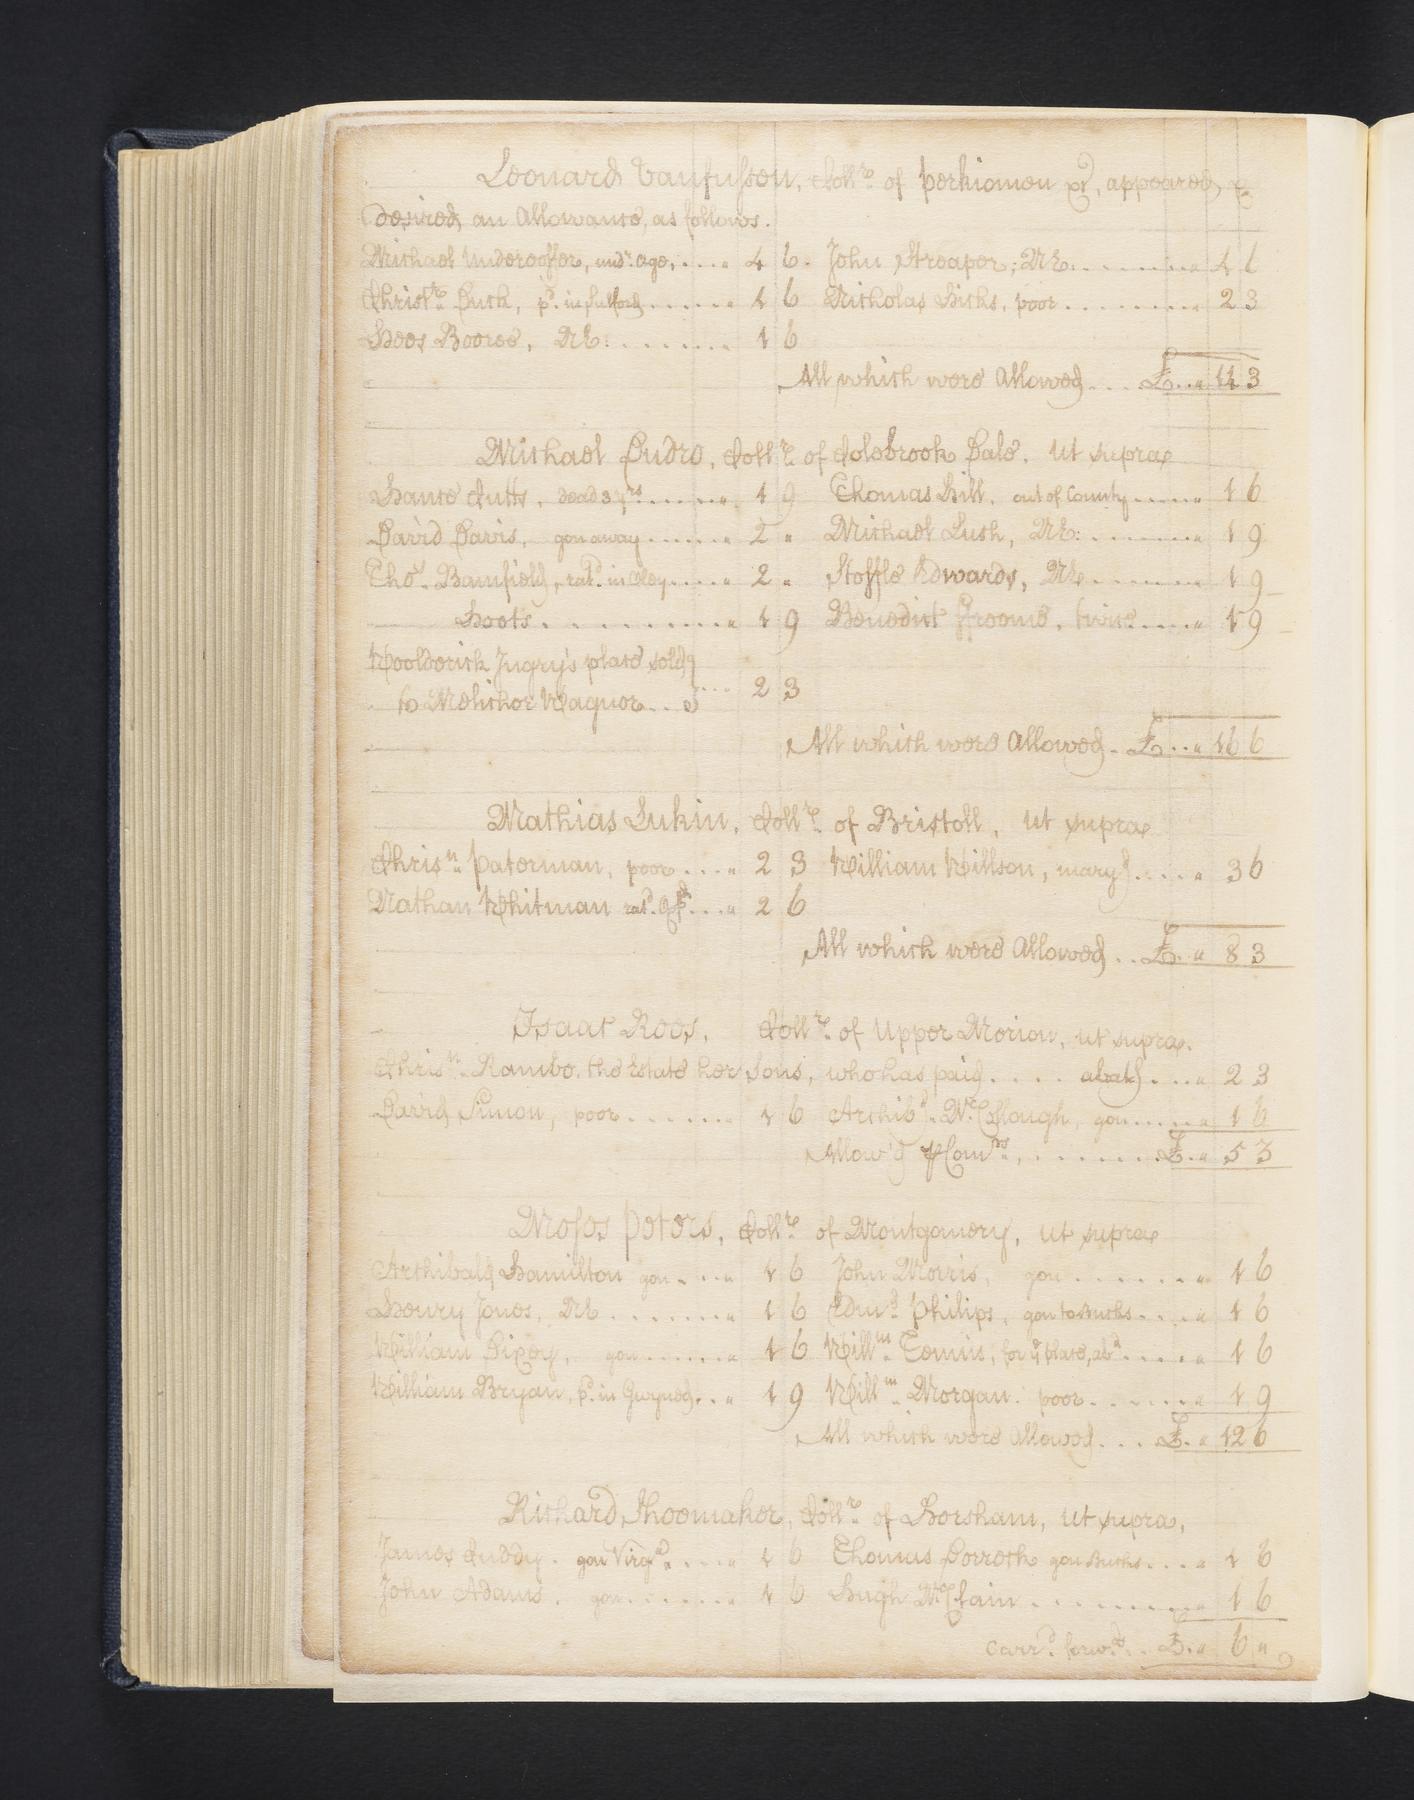 Leonard Vanfussen, Coll.r of perkiomen &, appeared, &
desired an Allowance, as follows.
Michael Undercoffer, und.r age, .... " 4 6. John Streaper; NE. ........ " 1 6
Christ.r Buck, p.d in Salford ...... " 1 6 Nicholas Hicks, poor ........ " 2 3
Hoos Booree, NE: ........ " 1 6
All which were Allowed .... £ .. " 11 3
Michael Ludro, Coll.r of Colebrook Dale, ut supra
Hance Cutts, dead 3 y.rs ...... " 1 9 Thomas Hill, out of County ..... " 1 6
David Davis, gon away ...... " 2 " Michael Lush, NE: ....... " 1 9
Tho.s Bamfield, rat.d in Oley .... " 2 " Stoffle Edwards, NE ...... " 1 9
Hoots .......... " 1 9 Benedict Groome, twice .... " 1 9
Wooldorick Jngry's place sold
to Melichor Wagnor .. 2 3
All which were Allowed . £ .. " 16 6
Mathias Lukin, Coll.r of Bristoll, ut supra
Chris.n paterman, poor .... " 2 3 William Willson, mary'd .... " 3 6
Nathan Whitman rat.d ... " 2 6
All which were Allowed .. £ . " 8 3
Isaac Roos, Coll.r of Upper Merion, ut supra.
Chris.n Rambo, the Estate her Sons, who has paid .... abat'd ... " 2 3
David Simon, poor ....... " 1 6 Archib.d M.cCollough, gon .... " 1 6
Allow'd p Com.rs, ....... £ . " 5 3
Moses peters, Coll.r of Montgomery, ut supra
Archibald Hamilton gon .... " 1 6 John Morris, gon ....... " 1 6
Henry Jones, NE ....... " 1 6 Edm.d Philips, gon to Bucks .... " 1 6
William Dixey, gon ...... " 1 6 Will.m Tennis, for y.e place, ab.d ..... " 1 6
William Bryan, p.d in Gwyned .. " 1 9 Will.m Morgan. poor ...... " 1 9
All which were Allowed ... £ . " 12 6
Richard Shoomaker, Coll.r of Horsham, ut supra,
James Cuddy. gon Virg.a .... " 1 6 Thomas Dorroch gon Bucks .... " 1 6
John Adams. gon ...... " 1 6 Hugh M.cClain ......... " 1 6
Carr.d forw.d .. £ . " 6 "